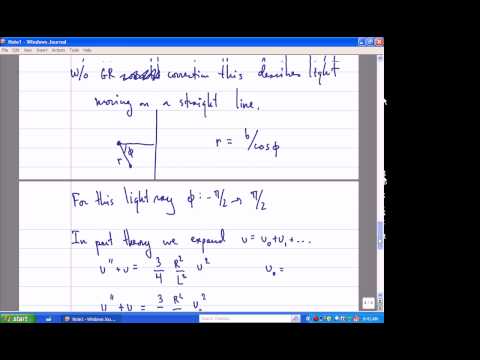 Note1 - Windows Journal
File Edit View Insert Actions Tools Help
w/o GR correction this describes light
moving on a straight line.
r φ
r = b/cosφ
For this light ray φ: -π/2 → π/2
In pert theory we expand u = u₀+u₁+...
u'' + u = 3/4 R²/L² u² u₀ =
u'' + u = 3 R² u₀²
start
Note1 - Windows Jou...